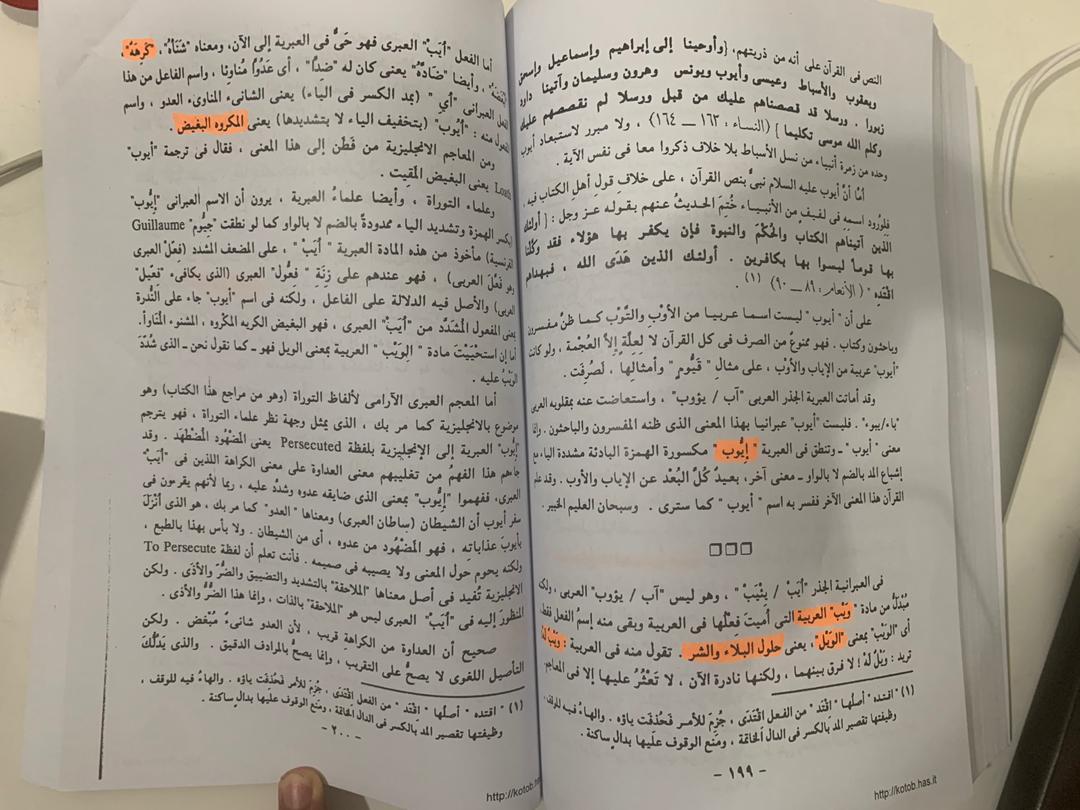 النص فى القرآن على أنه من ذريتهم، {وأوحينا إلى إبراهيم وإسماعيل وإسحق
ويعقوب والأسباط وعيسى وأيوب ويونس وهرون وسليمان وآتينا داود
زبورا . ورسلا قد قصصناهم عليك من قبل ورسلا لم نقصصهم عليك
وكلم الله موسى تكليما } (النساء : ١٦٣ ــ ١٦٤) ، ولا مبرر لاستبعاد أيوب
وحده من زمرة أنبياء من نسل الأسباط بلا خلاف ذكروا معا فى نفس الآية .
أمّا أنّ أيوب عليه السلام نبىٌّ بنص القرآن ، على خلافِ قولِ أهلِ الكتاب فيه ،
فلورُود اسمِه فى لفيفٍ من الأنبـيـاء خُتِمَ الحديثُ عنهم بقـولـه عـز وجل : { أولئك
الذين آتيناهم الكتاب والحُكْمَ والنبوة فإن يكفـر بها هـؤلاء فقد وكَّلْنا
بها قوماً ليسوا بها بكافرين . أولئـك الذين هَدَى الله ، فبهداهم
اقْتَدِه " ( الأنعام: ٨٩ ــ ٩٠) (١) .
على أن " أيوب " ليست اسمـا عـربيـا من الأوْبِ والتَّوْبِ كـمـا ظنَّ مفـسرون
وباحثون وكتاب . فهو ممنوعٌ من الصرف فى كل القرآن لا لِعلَّةٍ إلاَّ العُجْمة ، ولو كانت
"أيوب" عربية من الإياب والأوْب ، على مثالِ " قَيُّومٍ " وأمثالِها ، لَصُرِفَت .
وقد أماتت العبرية الجذر العربى "آب / يؤوب" ، واستعاضت عنه بمقلوبه العربى
"باء/يبوء" . فليست "أيوب" عبرانيا بهذا المعنى الذى ظنه المفسرون والباحثون . وإنما
معنى "أيوب" ـ وتنطق فى العبرية " إيُّوب " مكسورة الهمزة البادئة مشددة الياء مع
إشباع المد بالضم لا بالواو ـ معنى آخر، بعيدٌ كُلَّ البُعْد عن الإياب والأوب . وقد علم
القرآن هذا المعنى الآخر ففسر به اسم " أيوب " كما سترى . وسبحان العليم الخبير .
❒❒❒
فى العبرانية الجذر "أيَبْ / يِئْيَبْ" ، وهو ليس "آب / يؤوب" العربى ، ولكنه
مُبْدَلٌ من مادة " وَيْب" العربية التى أُميتَ فِعْلُها فى العربية وبقى منه إسمُ الفعل فقط،
أى "الوَيْب" بمعنى "الوَيْل" ، يعنى حلول البلاء والشر . تقول منه فى العربية : وَيْبٌ لَهُ
تريد : وَيْلٌ لَهُ ! لا فرق بينهما ، ولكنها نادرة الآن ، لا تَعْثُرُ عليها إلا فى المعاجم.
(١) " اقتده " أصلُها " اقْتَد " من الفعل اقْتَدَى ، جُزِمَ للأمـر فَحُذفت ياؤه . والهاءُ فيه للوقف ،
وظيفتها تقصير المد بالكسر فى الدال الخاتمة ، ومَنع الوقوف علَيها بدالٍ ساكنة .
– ١٩٩ –
http://kotob.has.it
أما الفعل "أيَبْ" العبرى فهو حَىٌّ فى العبرية إلى الآن، ومعناه "شَنَأهُ"، "كَرِهَهُ"،
"أبْغَضَهُ" ، وأيضا "ضَادَّهُ" يعنى كان له "ضدا" ، أى عَدُوًّا مُناوِئا ، واسم الفاعل من هذا
الفعل العبرانى "أيِ " (بمد الكسر فى الياء) يعنى الشانئ المناوئ العدو ، واسم
المفعول منه : "أيُوب" (بتخفيف الياء لا بتشديدها) يعنى المكروه البغيض .
ومن المعاجم الانجليزية من فَطَن إلى هذا المعنى ، فقال فى ترجمة "أيوب"
Loath يعنى البغيض المقِيت .
وعلماء التوراة ، وأيضا علماءُ العبرية ، يرون أن الاسم العبرانى "إيُّوب"
بكسر الهمزة وتشديد الياء ممدودةً بالضم لا بالواو كما لو نطقت "جِيُّوم" Guillaume
الفرنسية) مأخوذ من هذه المادة العبرية " أيَبْ " ، على المضعف المشدد (فِعِلْ العبرى
وهو فَعَّلَ العربى) ، فهو عندهم على زِنَةِ " فِعُّول" العبرى (الذى يكافىء "فِعِّيل"
العربى) والأصل فيه الدلالة على الفاعل ، ولكنه فى اسم "أيوب" جاء على النُّدرة
بمعنى المفعول المشَدَّد من "أيَبْ" العبرى ، فهو البغيض الكريه المكْروه ، المشنوء المُناوَأ.
أما إن استحْيَيْتَ مادة " الوَيْب " العربية بمعنى الويل فهو ـ كما نقول نحن ـ الذى شُدِّدَ
الوَيْبُ عليه .
أما المعجم العبرى الآرامى لألفاظ التوراة (وهو من مراجع هذا الكتاب) وهو
موضوع بالانجليزية كما مر بك ، الذى يمثل وجهة نظر علماء التوراة ، فهو يترجم
إيُّوب" العبرية إلى الإنجليزية بلفظة Persecuted يعنى المضْهُود المُضْطَهد . وقد
جاءهم هذا الفهمُ من تغليبهم معنى العداوة على معنى الكراهة اللذين فى "أيَبْ"
العبرى، ففهموا "إيُّوب" بمعنى الذى ضايقه عدوه وشدَّد عليه ، ربما لأنهم يقرءون فى
سفر أيوب أن الشيطان (ساطان العبرى) ومعناها "العدو" كما مر بك ، هو الذى أنْزَلَ
بأيوبَ عذاباتِه ، فهو المضْهُود من عدوه ، أى من الشيطان . ولا بأس بهذا بالطبع ،
ولكنه يحوم حول المعنى ولا يصيبه فى صميمه . فأنت تعلم أن لفظة To Persecute
الانجليزية تُفيد فى أصل معناها "الملاحقة" بالتشديد والتضييق والضُّرِّ والأذَى . ولكن
المنظورَ إليه فى "أيَبْ" العبرى ليس هو "الملاحقة" بالذات ، وإنما هذا الضُّرُّ والأذى .
صحيح أن العداوة من الكراهةِ قريب ، لأن العدو شانىءٌ مُبْغض . ولكن
التأصيل اللغوى لا يصحُّ على التقريب ، وإنما يصحُّ بالمرادف الدقيق . والذى يَدُلُّكَ
(١) " اقتده " أصلُها " اقْتَد " من الفعل اقْتَدَى ، جُزِمَ للأمر فَحُذفت ياؤه . والهاءُ فيه للوقف ،
وظيفتها تقصير المد بالكسر فى الدال الخاتمة ، ومَنع الوقوف علَيها بدالٍ ساكنة .
– ٢٠٠ –
http://kotob.has